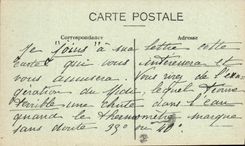 CARTE POSTALE
Correspondance
Adresse
Je "joins" à sa lettre cette
carte qui vous intéressera et
vous amusera. Vous riez de l'exa-
gération du Midi, lequel
une chute dans l'eau
quand le thermomètre marque
sans doute 35° ou 40°.